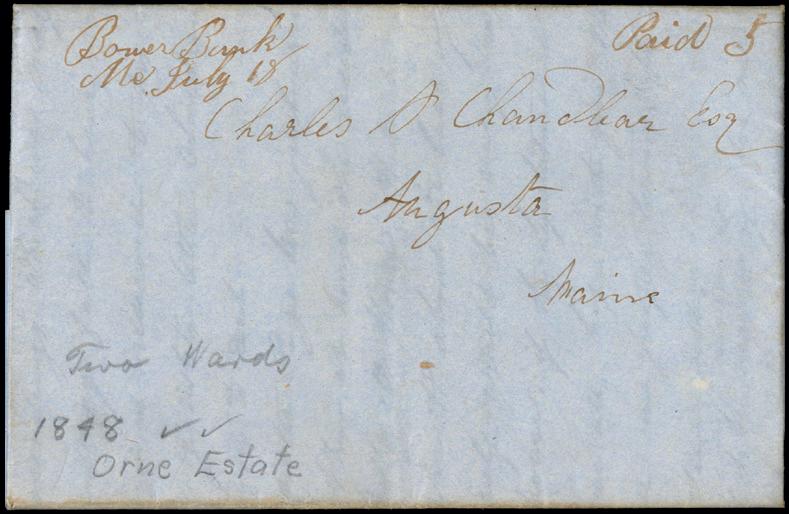 Bower Bank
Me. July 18
Paid 5
Charles P Chandlear Esq
Augusta
Maine
Two Wards
1848 ✓✓
Orne Estate